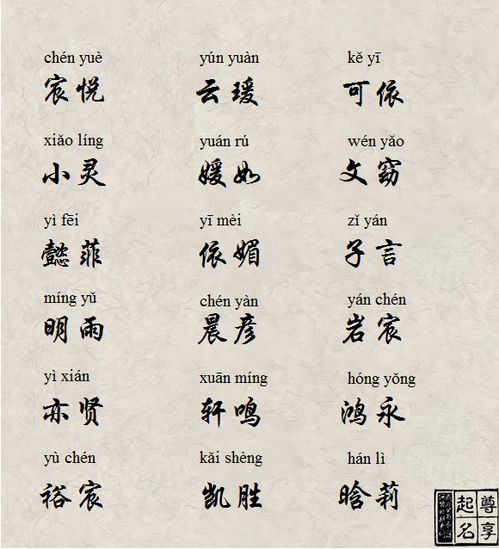 chén yuè yún yuàn kě yī
宸悦 云瑗 可依
xiǎo líng yuán rú wén yǎo
小灵 媛如 文窈
yì fēi yī mèi zǐ yán
懿菲 依媚 子言
míng yǔ chén yàn yán chén
明雨 晨彦 岩宸
yì xián xuān míng hóng yǒng
亦贤 轩鸣 鸿永
yù chén kǎi shèng hán lì
裕宸 凯胜 晗莉
尊享
起名